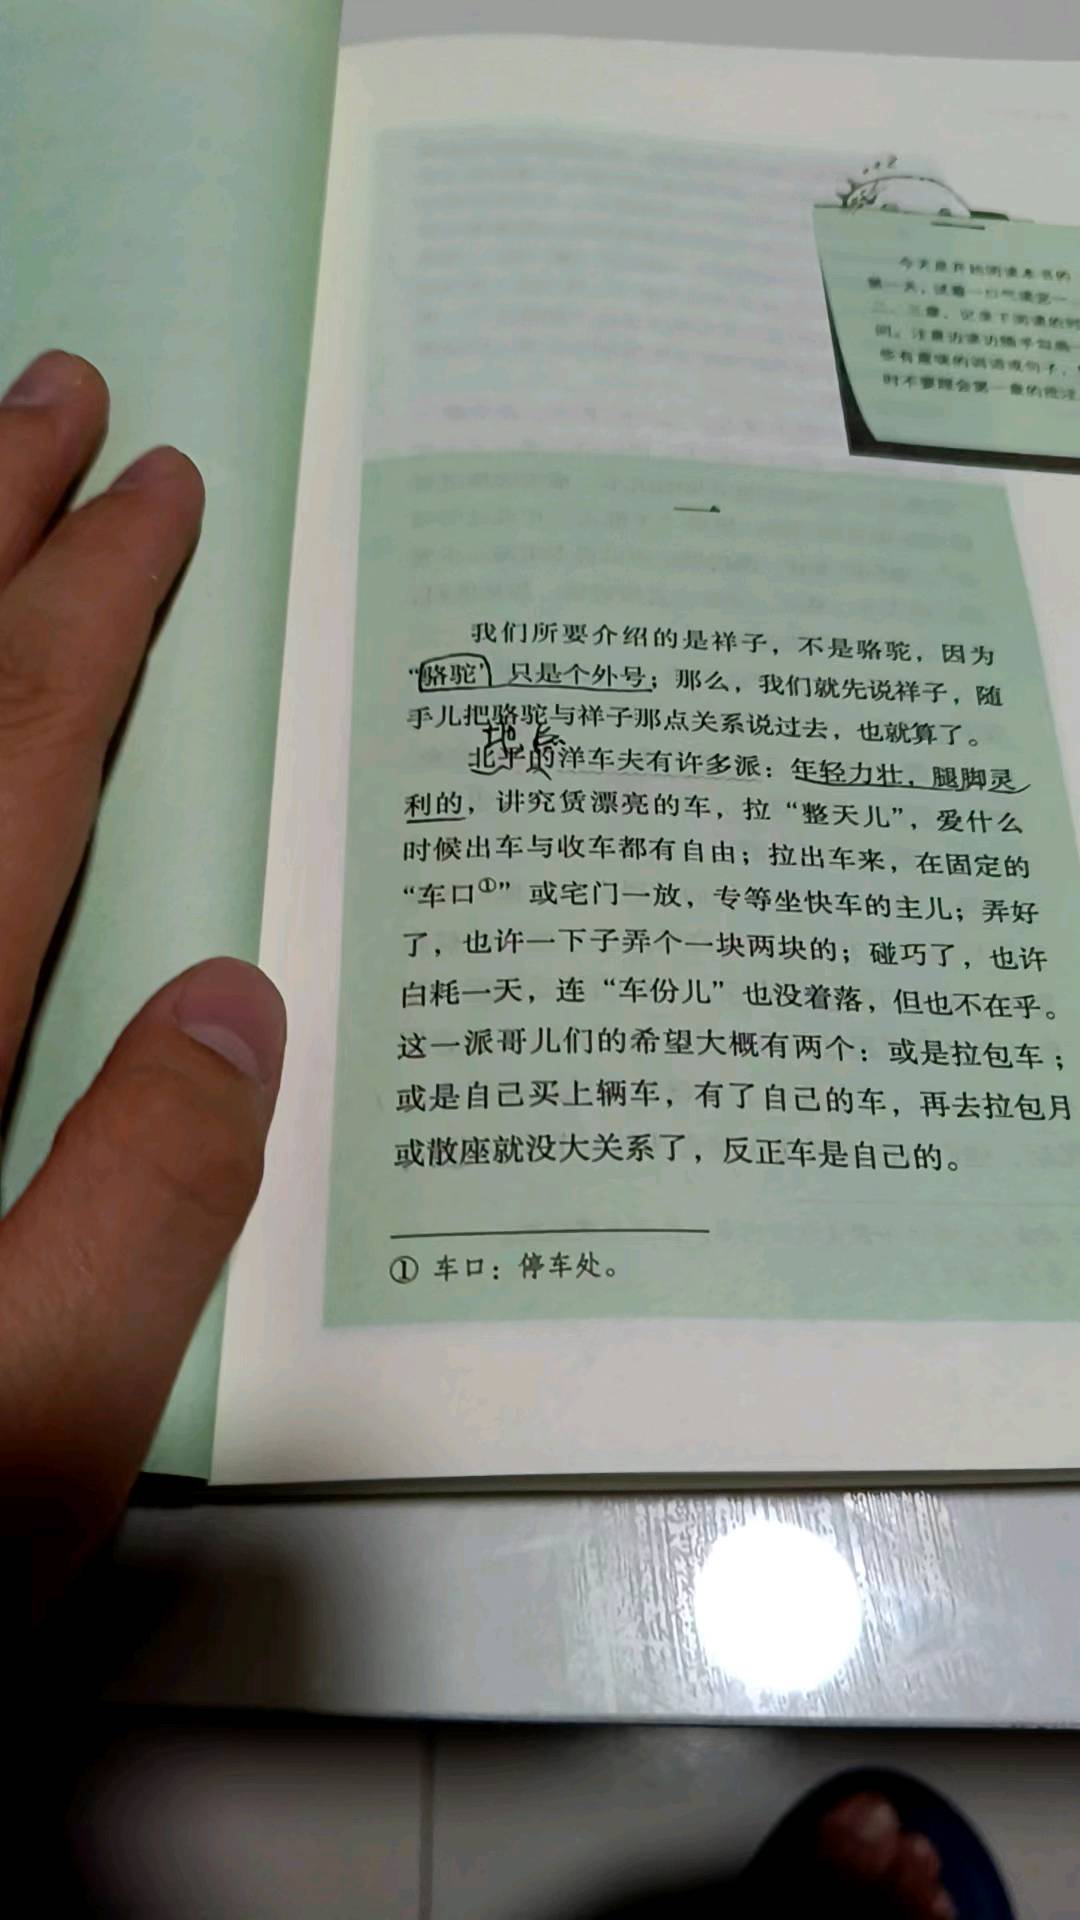 今天是开始阅读本书的
第一天，试着一口气读完一、
二、三章，记录下阅读的时
间。注意边读边随手勾画一
些有意味的词语或句子，
时不要理会第一章的批注
一
我们所要介绍的是祥子，不是骆驼，因为
“骆驼”只是个外号；那么，我们就先说祥子，随
手儿把骆驼与祥子那点关系说过去，也就算了。
地点
北平的洋车夫有许多派：年轻力壮，腿脚灵
利的，讲究赁漂亮的车，拉“整天儿”，爱什么
时候出车与收车都有自由；拉出车来，在固定的
“车口①”或宅门一放，专等坐快车的主儿；弄好
了，也许一下子弄个一块两块的；碰巧了，也许
白耗一天，连“车份儿”也没着落，但也不在乎。
这一派哥儿们的希望大概有两个：或是拉包车；
或是自己买上辆车，有了自己的车，再去拉包月
或散座就没大关系了，反正车是自己的。
① 车口：停车处。